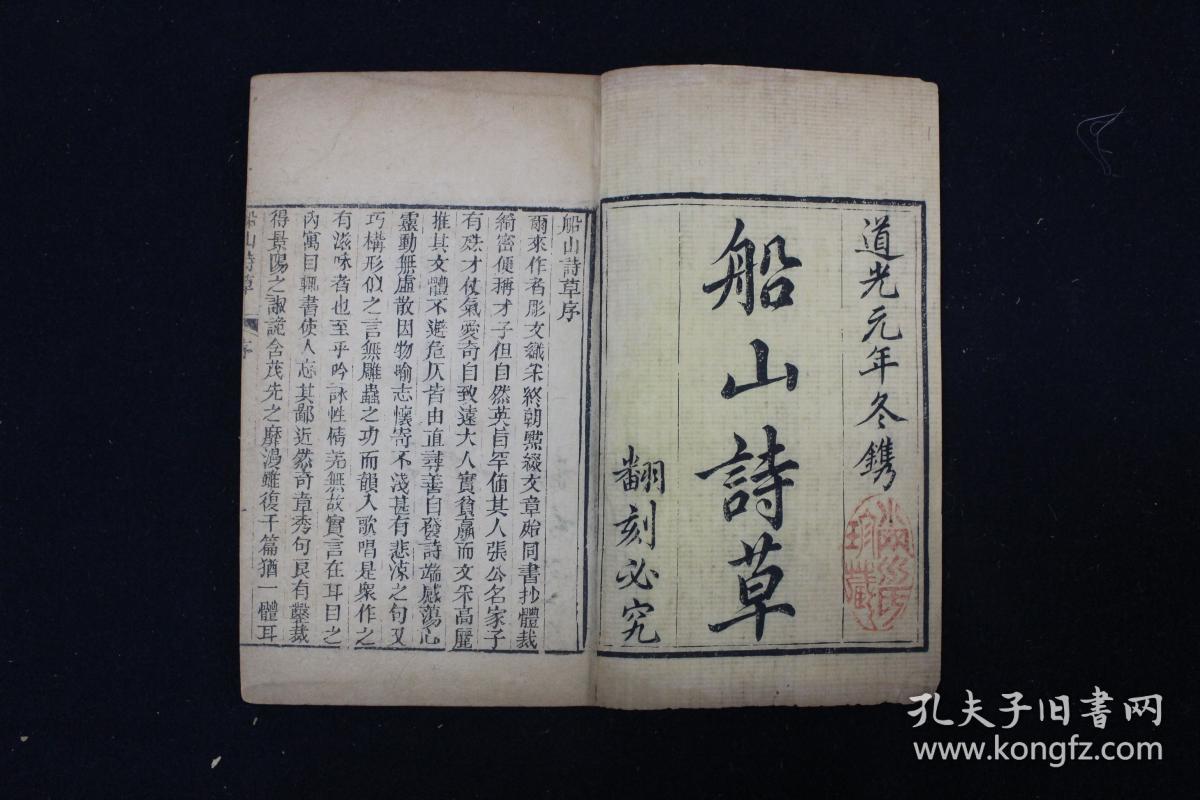 道光元年冬鐫
船山詩草
翻刻必究
珍藏
船山詩草序
爾來作者彫文織采終朝點綴文章殆同書抄體裁
綺密便稱才子但自然英旨罕值其人張公名家子
有殊才仗氣愛奇自致遠大人實貧羸而文采高麗
推其文體不避危仄皆由直尋善自發詩端感蕩心
靈動無虛散因物喻志懷寄不淺甚有悲涼之句又
巧構形似之言無雕蟲之功而韻入歌唱是衆作之
有滋味者也至乎吟詠性情羌無故實言在耳目之
內寓目輒書使人忘其鄙近然奇章秀句良有鑒裁
得景陽之諔詭含茂先之靡漫雖復千篇猶一體耳
船山詩草 序
孔夫子旧書网
www.kongfz.com